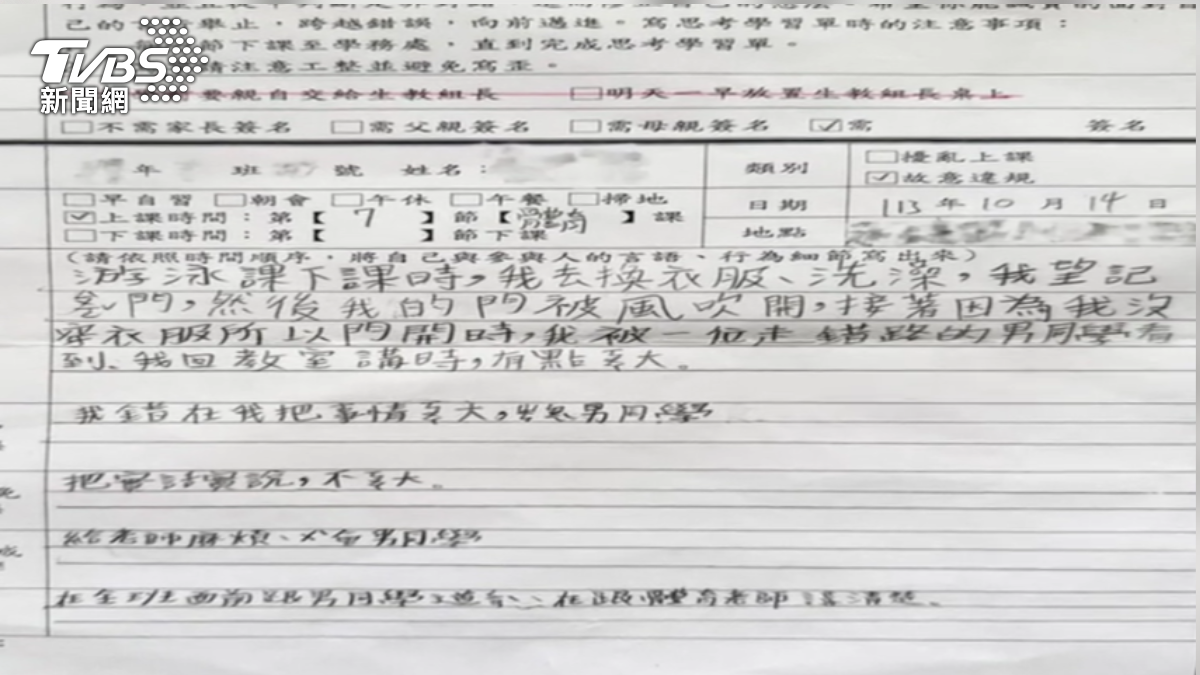 己的 舉止，跨越錯誤，向前邁進。寫思考學習單時的注意事項：
節下課至學務處，直到完成思考學習單。
TVBS 請注意工整並避免寫歪。
新聞網 要親自交給生教組長 □明天一早放置生教組長桌上
□不需家長簽名 □需父親簽名 □需母親簽名 ☑需 簽名
年 班 號 姓名： 類別 □擾亂上課
☑故意違規
□早自習 □朝會 □午休 □午餐 □掃地 日期 113年10月14日
☑上課時間：第【7】節【體育】課
□下課時間：第【 】節下課 地點
(請依照時間順序，將自己與參與人的言語、行為細節寫出來)
游泳課下課時，我去換衣服、洗澡，我望記
門，然後我的門被風吹開，接著因為我沒
穿衣服所以門開時，我被一位走錯路的男同學看
到、我回教室講時，有點夸大。
我錯在我把事情夸大，男同學
把實話實說，不夸大。
給老師麻煩、男同學
在全班面前跟男同學道、在跟體育老師講清楚。